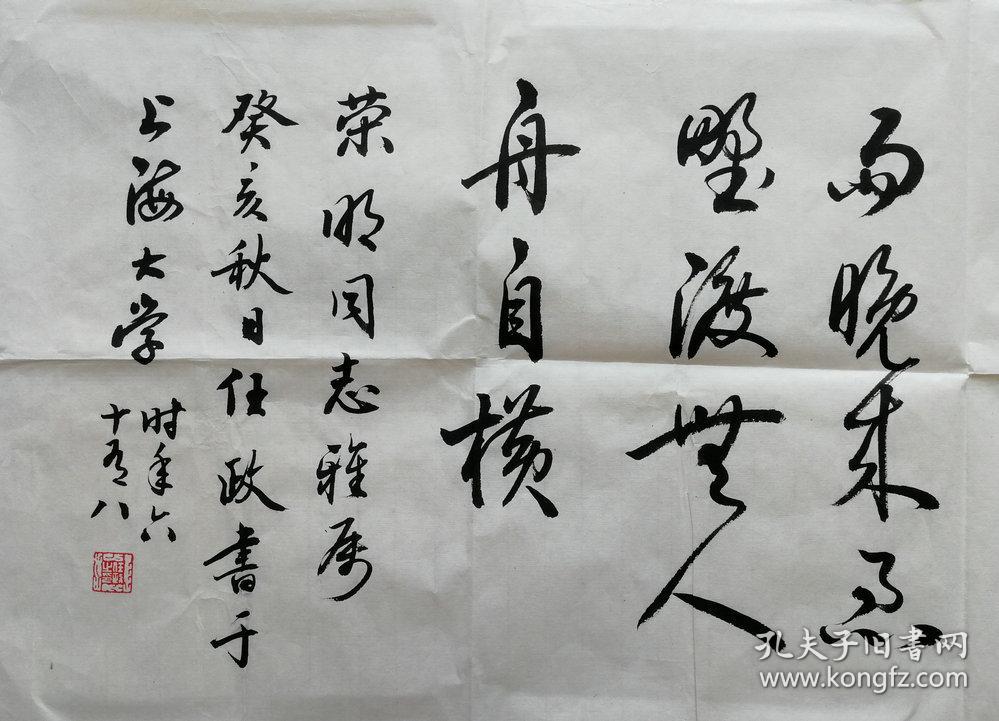 雨晚来急
野渡無人
舟自横
荣明同志雅属
癸亥秋日任政書于
上海大学
时年六
十有八
孔夫子旧书网
www.kongfz.com